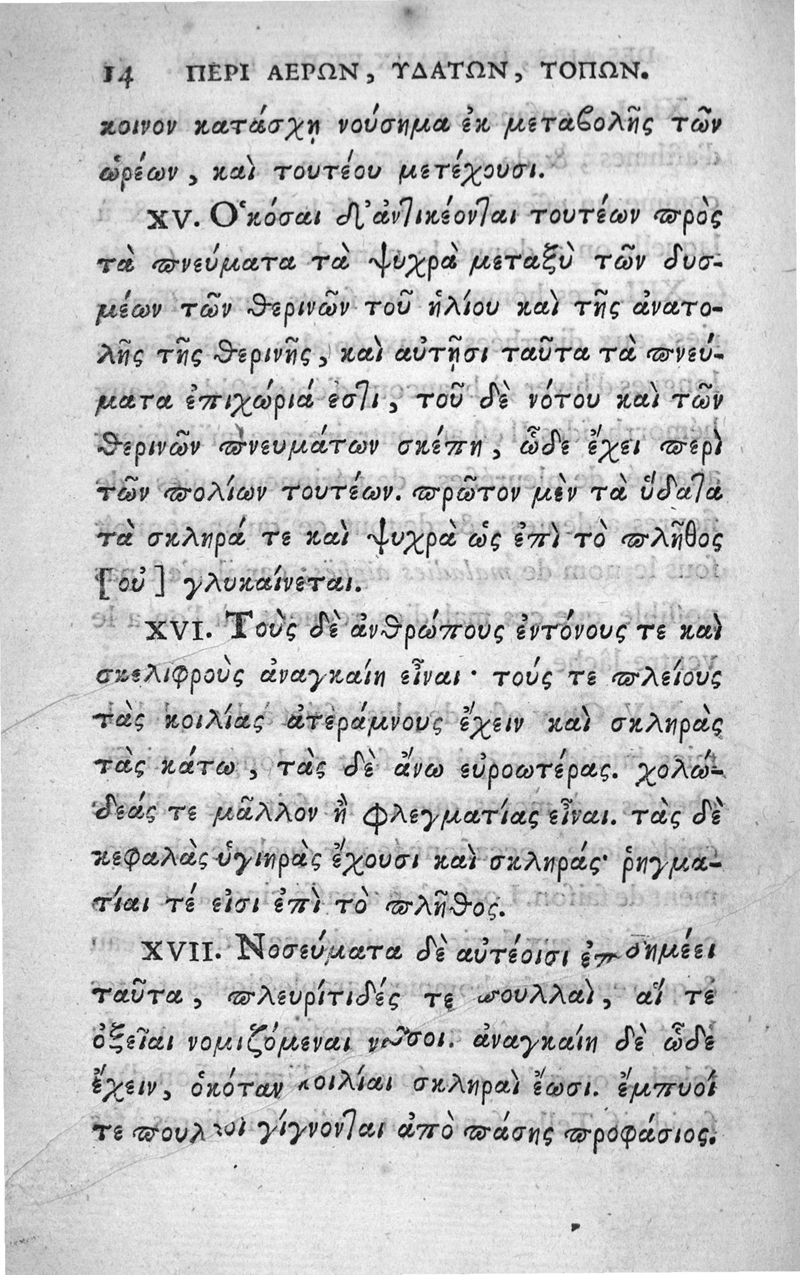 14 ΠΕΡΙ ΑΕΡΩΝ, ΥΔΑΤΩΝ, ΤΟΠΩΝ.
κοινον κατάσχῃ νούσημα ἐκ μεταβολῆς τῶν
ὡρέων, καὶ τουτέου μετέχουσι.
XV. Ὁκόσαι δ' ἀντικέονται τουτέων πρὸς
τὰ πνεύματα τὰ ψυχρὰ μεταξὺ τῶν δυσ-
μέων τῶν θερινῶν τοῦ ἡλίου καὶ τῆς ἀνατο-
λῆς τῆς θερινῆς, καὶ αὐτῇσι ταῦτα τὰ πνεύ-
ματα ἐπιχώριά ἐστι, τοῦ δὲ νότου καὶ τῶν
θερινῶν πνευμάτων σκέπη, ὧδε ἔχει περὶ
τῶν πολίων τουτέων. πρῶτον μὲν τὰ ὕδατα
τὰ σκληρά τε καὶ ψυχρὰ ὡς ἐπὶ τὸ πλῆθος
[οὐ] γλυκαίνεται.
XVI. Τοὺς δὲ ἀνθρώπους ἐντόνους τε καὶ
σκελιφροὺς ἀναγκαίη εἶναι· τούς τε πλείους
τὰς κοιλίας ἀτεράμνους ἔχειν καὶ σκληρὰς
τὰς κάτω, τὰς δὲ ἄνω εὐροωτέρας. χολώ-
δεάς τε μᾶλλον ἢ φλεγματίας εἶναι. τὰς δὲ
κεφαλὰς ὑγιηρὰς ἔχουσι καὶ σκληράς· ῥηγμα-
τίαι τέ εἰσι ἐπὶ τὸ πλῆθος.
XVII. Νοσεύματα δὲ αὐτέοισι ἐπιδημέει
ταῦτα, πλευρίτιδές τε πουλλαὶ, αἵ τε
ὀξεῖαι νομιζόμεναι νοῦσοι. ἀναγκαίη δὲ ὧδε
ἔχειν, ὁκόταν κοιλίαι σκληραὶ ἔωσι. ἔμπυοί
τε πουλλοὶ γίγνονται ἀπὸ πάσης προφάσιος.